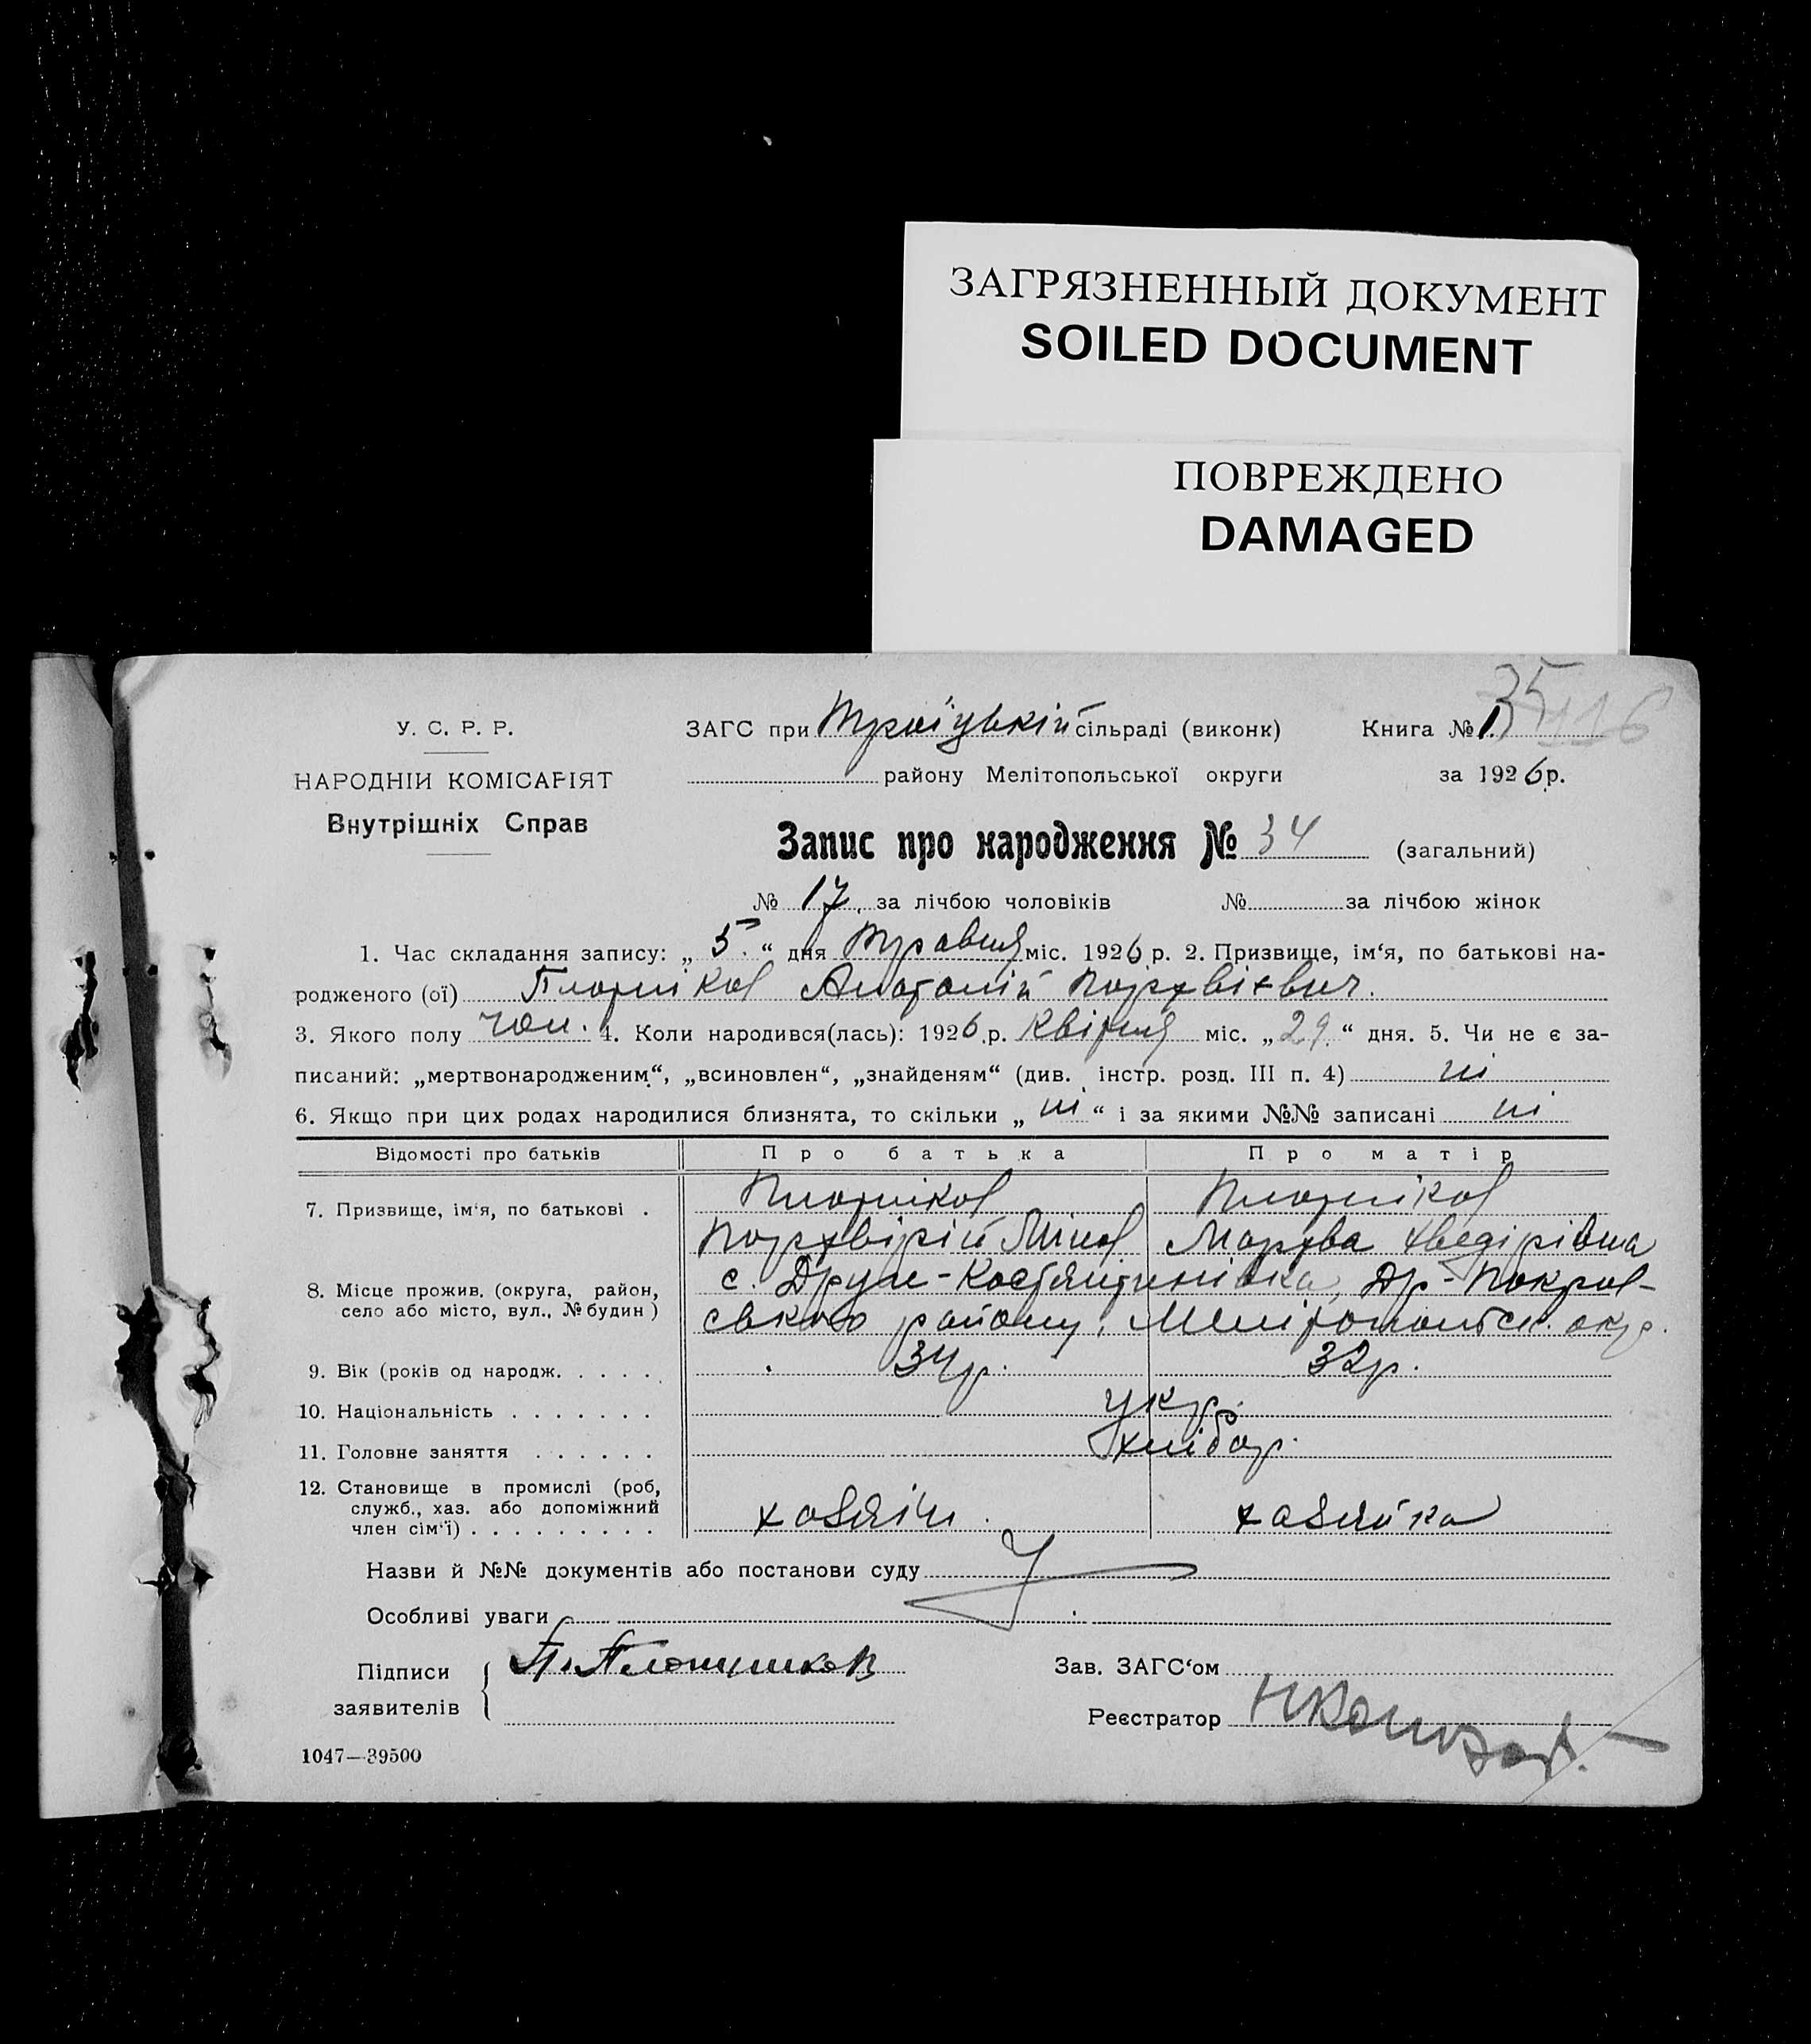 ЗАГРЯЗНЕННЫЙ ДОКУМЕНТ
SOILED DOCUMENT
ПОВРЕЖДЕНО
DAMAGED
35
116
У. С. Р. Р.
НАРОДНІЙ КОМІСАРІЯТ
Внутрішніх Справ
ЗАГС при Троїцькій сільраді (виконк)
Книга № 1
району Мелітопольської округи
за 1926 р.
Запис про народження № 34 (загальний)
№ 17 за лічбою чоловіків № за лічбою жінок
1. Час складання запису: „ 5 “ дня Травня міс. 1926 р. 2. Призвище, ім‘я, по батькові на-
родженого (ої) Плотніков Анатолій
3. Якого полу чол. 4. Коли народився(лась): 1926 р. Квітня міс. „ 29 “ дня. 5. Чи не є за-
писаний: „мертвонародженим“, „всиновлен“, „знайденям“ (див. інстр. розд. III п. 4) ні
6. Якщо при цих родах народилися близнята, то скільки „ ні “ і за якими №№ записані ні
Відомості про батьків Про батька Про матір
7. Призвище, ім‘я, по батькові . Плотніков Плотніков
Марфва хведірівна
8. Місце прожив. (округа, район, с. Друге-Костянтинівка, Др-Покров-
село або місто, вул., № будин ) ського району, Мелітопольськ. окр.
9. Вік (років од народж. . . . . . 34 р. 32 р.
10. Національність . . . . . . . укр.
11. Головне заняття . . . . . . хлібор.
12. Становище в промислі (роб,
служб., хаз. або допоміжний
член сім‘ї) . . . . . . . . . хазяїн хазяйка
Назви й №№ документів або постанови суду
Особливі уваги
Підписи П. Плотников
заявителів
Зав. ЗАГС‘ом
Реєстратор
1047—39500